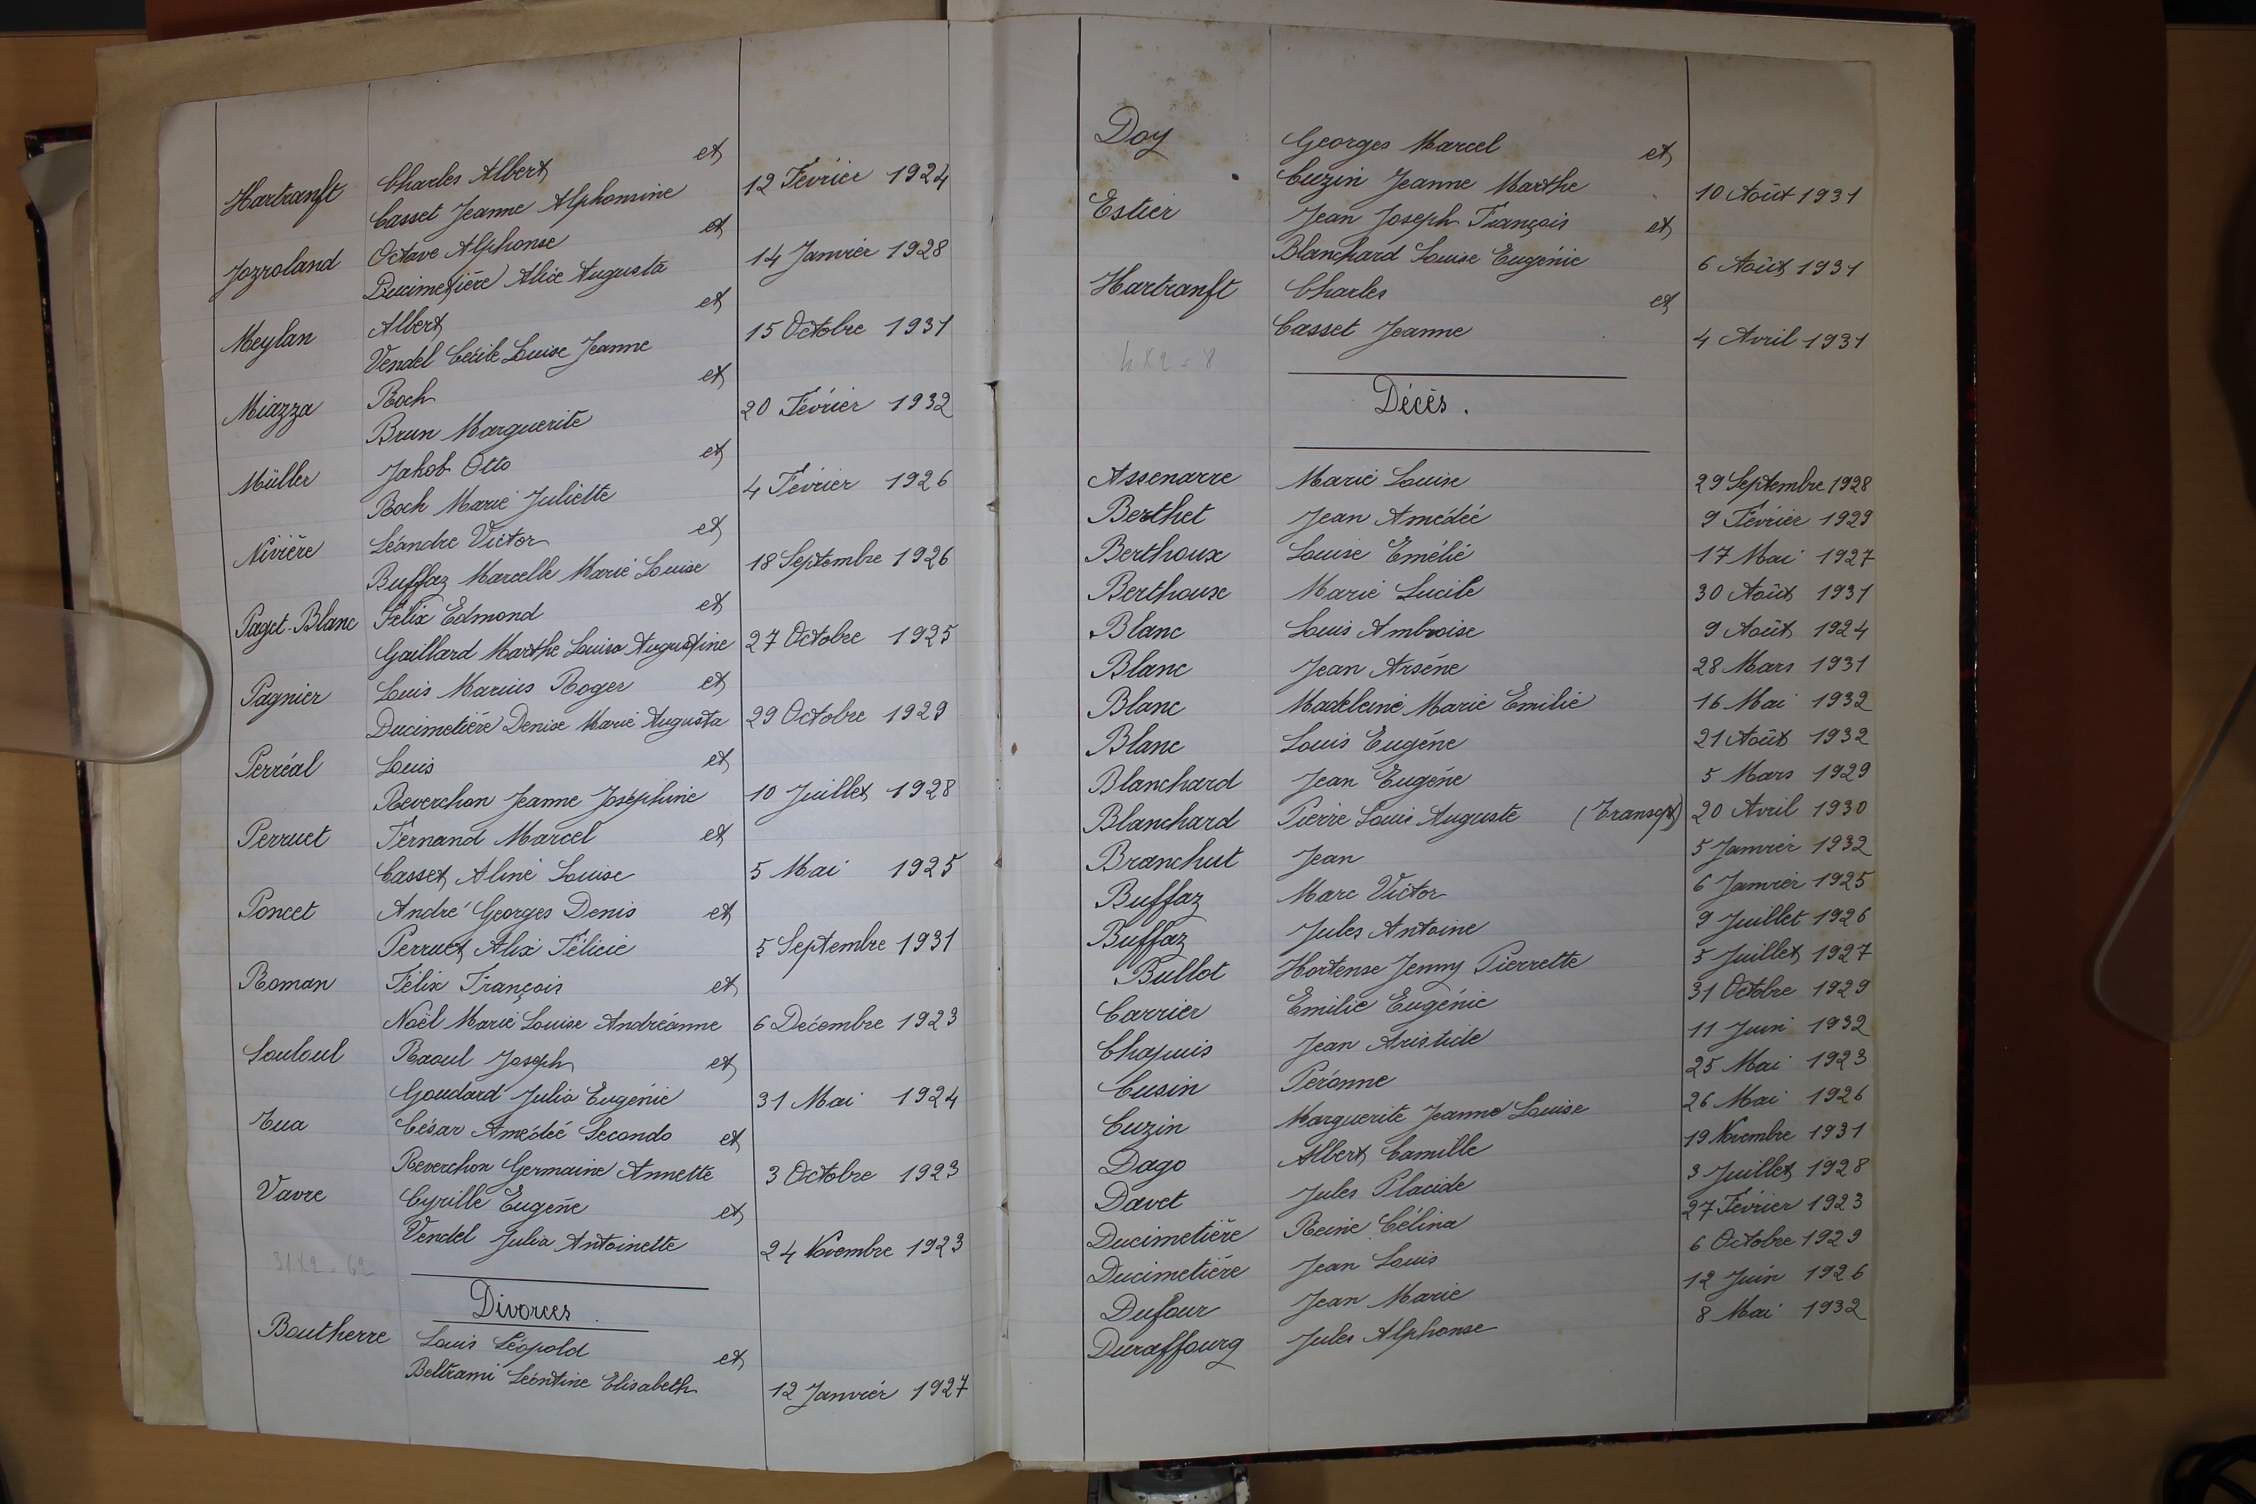 Hartranft Charles Albert et
Casset Jeanne Alphonsine 12 Février 1924
Jozroland Octave Alphonse et
Ducimetière Alice Augusta 14 Janvier 1928
Meylan Albert et
Vendel Cécile Louise Jeanne 15 Octobre 1931
Miazza Roch et
Brun Marguerite 20 Février 1932
Müller Jakob Otto et
Roch Marie Juliette 4 Février 1926
Nivière Léandre Victor et
Buffaz Marcelle Marie Louise 18 Septembre 1926
Paget-Blanc Félix Edmond et
Gaillard Marthe Louise Augustine 27 Octobre 1925
Pagnier Louis Marius Roger et
Ducimetière Denise Marie Augusta 29 Octobre 1929
Perréal Louis et
Reverchon Jeanne Joséphine 10 Juillet 1928
Perruet Fernand Marcel et
Casset Aline Louise 5 Mai 1925
Poncet André Georges Denis et
Perruet Alix Félicie 5 Septembre 1931
Roman Félix François et
Noël Marie Louise Andréanne 6 Décembre 1923
Souloul Raoul Joseph et
Goudard Julia Eugénie 31 Mai 1924
Tua César Amédée Secondo et
Reverchon Germaine Annette 3 Octobre 1923
Vavre Cyrille Eugène et
Vendel Julia Antoinette 24 Novembre 1923
31x2=62
Divorces
Boutherre Louis Léopold et
Beltrami Léontine Elisabeth 12 Janvier 1927
Doy Georges Marcel et
Cuzin Jeanne Marthe 10 Août 1931
Estier Jean Joseph François et
Blanchard Louise Eugénie 6 Août 1931
Hartranft Charles et
Casset Jeanne 4 Avril 1931
4x2=8
Décès.
Assenarre Marie Louise 29 Septembre 1928
Berthet Jean Amédée 9 Février 1929
Berthoux Louise Emélie 17 Mai 1927
Berthoux Marie Lucile 30 Août 1931
Blanc Louis Ambroise 9 Août 1924
Blanc Jean Arsène 28 Mars 1931
Blanc Madeleine Marie Emilie 16 Mai 1932
Blanc Louis Eugène 21 Août 1932
Blanchard Jean Eugène 5 Mars 1929
Blanchard Pierre Louis Auguste (Transcpt) 20 Avril 1930
Branchut Jean 5 Janvier 1932
Buffaz Marc Victor 6 Janvier 1925
Buffaz Jules Antoine 9 Juillet 1926
Bullot Hortense Jenny Pierrette 5 Juillet 1927
Carrier Emilie Eugénie 31 Octobre 1929
Chapuis Jean Aristide 11 Juin 1932
Cusin Peronne 25 Mai 1923
Cuzin Marguerite Jeanne Louise 26 Mai 1926
Dago Albert Camille 19 Novembre 1931
Davet Jules Placide 3 Juillet 1928
Ducimetière Reine Célina 27 Février 1923
Ducimetière Jean Louis 6 Octobre 1929
Dufour Jean Marie 12 Juin 1926
Duraffourg Jules Alphonse 8 Mai 1932